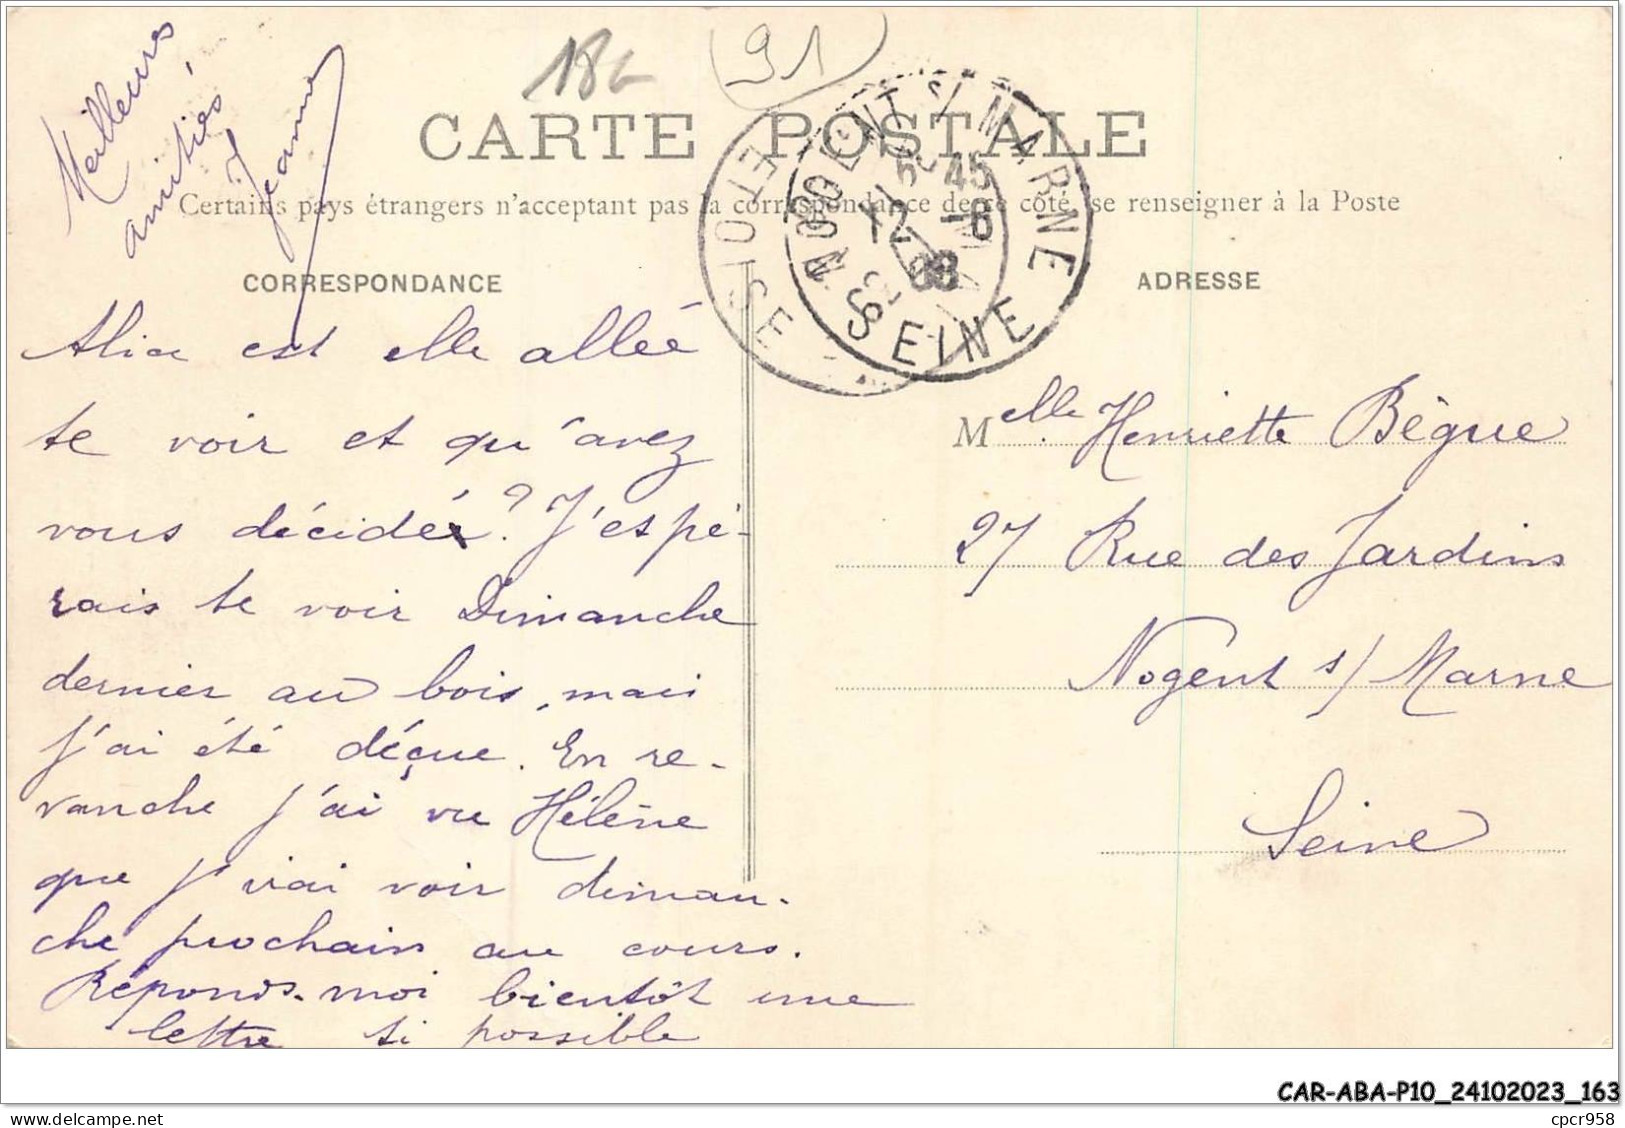 Meilleures
amitiés
Jeanne
18c
91
CARTE POSTALE
Certains pays étrangers n'acceptant pas la correspondance de ce côté, se renseigner à la Poste
CORRESPONDANCE
ADRESSE
NOGENT S/ MARNE
5 45
12 -6
08
SEINE
SEINE ET OISE
Alice est elle alleé
te voir et qu'avez
vous décidé? J'espé-
rais te voir Dimanche
dernier au bois, mais
j'ai été déçue. En re-
vanche j'ai vu Hélène
que j'irai voir diman-
che prochain au cours.
Réponds-moi bientôt une
lettre si possible
Melle Henriette Bègue
27 Rue des Jardins
Nogent s/ Marne
Seine
CAR-ABA-P10_24102023_163
cpcr958